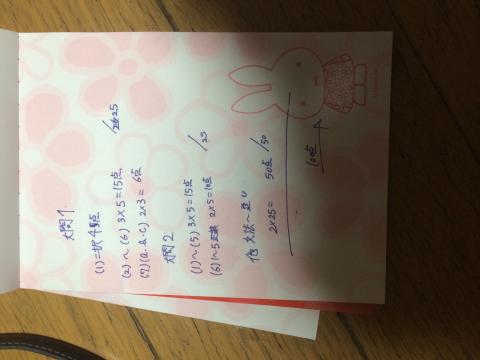 大問1
(1)=択4点
(2)~(6) 3×5=15点
(7)(a.b.c) 2×3= 6点 /25
大問2
(1)~(5) 3×5=15点
(6)1~5 2×5=10点 /25
他 文法~並い
2×25= 50点 /50
100点